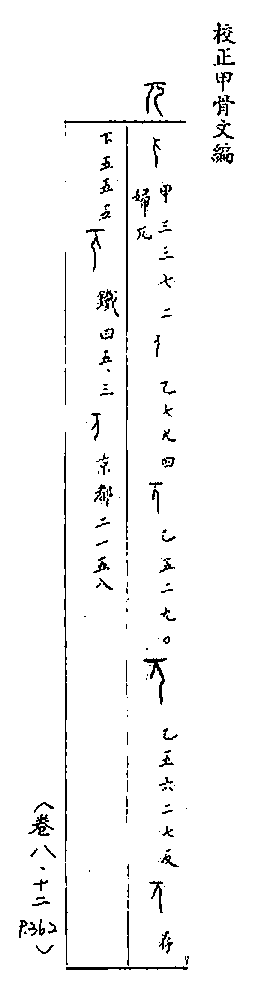 校正甲骨文編
甲三三七二 婦兀 乙七九四 乙五二九〇 乙五六二七反 存
下五五五 鐵四五·三 京都二一五八
(卷八·十二 P.362)